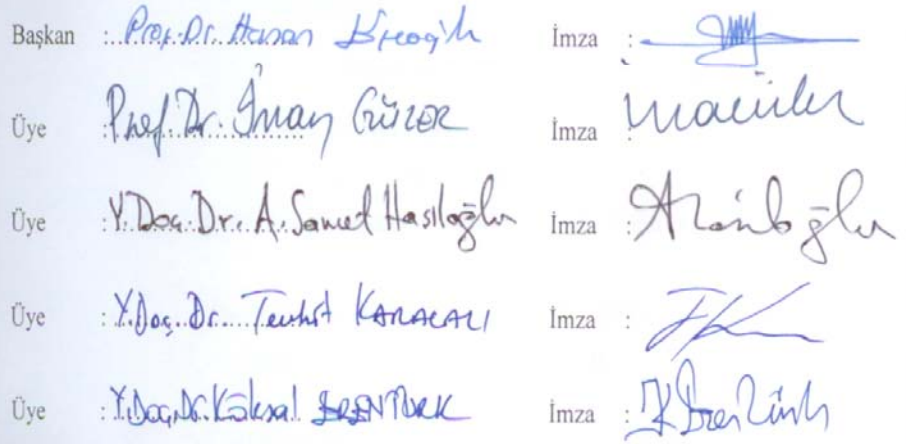 Başkan : Prof. Dr. Hasan İmza :
Üye : Prof. Dr. İnan GÜLER İmza :
Üye : Y. Doç. Dr. A. Samet Hasıloğlu İmza :
Üye : Y. Doç. Dr. Tevhit KARACALI İmza :
Üye : Y. Doç. Dr. Köksal ERENTÜRK İmza :